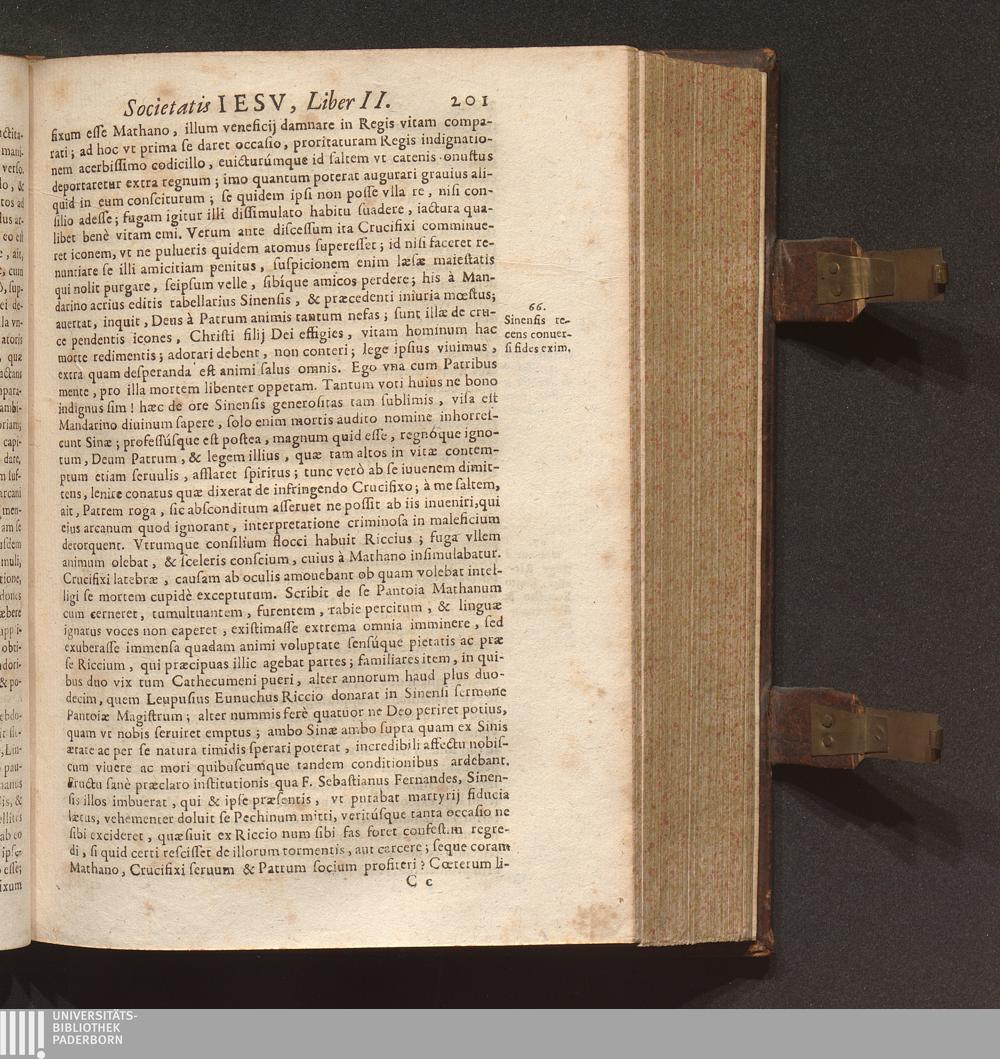 Societatis IESV, Liber II. 201
fixum esse Mathano, illum veneficij damnare in Regis vitam compa-
rati; ad hoc vt prima se daret occasio, proritaturam Regis indignatio-
nem acerbissimo codicillo, euicturúmque id saltem vt catenis onustus
deportaretur extra regnum; imo quantum poterat augurari grauius ali-
quid in eum consciturum; se quidem ipsi non posse vlla re, nisi con-
silio adesse; fugam igitur illi dissimulato habitu suadere, iactura qua-
libet benè vitam emi. Verum ante discessum ita Crucifixi comminue-
ret iconem, vt ne pulueris quidem atomus superesset; id nisi faceret re-
nuntiare se illi amicitiam penitus, suspicionem enim læsæ maiestatis
qui nolit purgare, seipsum velle, sibíque amicos perdere; his à Man-
darino acrius editis tabellarius Sinensis, & præcedenti iniuria mœstus;
auertat, inquit, Deus à Patrum animis tantum nefas; sunt illæ de cru-
ce pendentis icones, Christi filij Dei effigies, vitam hominum hac
morte redimentis; adorari debent, non conteri; lege ipsius viuimus,
extra quam desperanda est animi salus omnis. Ego vna cum Patribus
mente, pro illa mortem libenter oppetam. Tantum voti huius ne bono
indignus sim! hæc de ore Sinensis generositas tam sublimis, visa est
Mandarino diuinum sapere, solo enim mortis audito nomine inhorres-
cunt Sinæ; professúsque est postea, magnum quid esse, regnóque igno-
tum, Deum Patrum, & legem illius, quæ tam altos in vitæ contem-
ptum etiam seruulis, afflaret spiritus; tunc verò ab se iuuenem dimit-
tens, lenire conatus quæ dixerat de infringendo Crucifixo; à me saltem,
ait, Patrem roga, sic absconditum asseruet ne possit ab iis inueniri, qui
eius arcanum quod ignorant, interpretatione criminosa in maleficium
detorquent. Vtrumque consilium flocci habuit Riccius; fuga vllem
animum olebat, & sceleris conscium, cuius à Mathano insimulabatur.
Crucifixi latebræ, causam ab oculis amouebant ob quam volebat intel-
ligi se mortem cupidè excepturum. Scribit de se Pantoia Mathanum
cum cerneret, tumultuantem, furentem, rabie percitum, & linguæ
ignarus voces non caperet, existimasse extrema omnia imminere, sed
exuberasse immensa quadam animi voluptate sensúque pietatis ac præ
se Riccium, qui præcipuas illic agebat partes; familiares item, in qui-
bus duo vix tum Cathecumeni pueri, alter annorum haud plus duo-
decim, quem Leupusius Eunuchus Riccio donarat in Sinensi sermone
Pantoiæ Magistrum; alter nummis ferè quatuor ne Deo periret potius,
quam vt nobis seruiret emptus; ambo Sinæ ambo supra quam ex Sinis
ætate ac per se natura timidis sperari poterat, incredibili affectu nobis-
cum viuere ac mori quibuscumque tandem conditionibus ardebant.
Fructu sanè præclaro institutionis qua F. Sebastianus Fernandes, Sinen-
sis illos imbuerat, qui & ipse præsentis, vt putabat martyrij fiducia
lætus, vehementer doluit se Pechinum mitti, veritúsque tanta occasio ne
sibi excideret, quæsiuit ex Riccio num sibi fas foret confestim regre-
di, si quid certi resciisset de illorum tormentis, aut carcere; seque coram
Mathano, Crucifixi seruum & Patrum socium profiteri? Cœterum li-
C c
66.
Sinensis re-
cens conuer-
si fides exim.
UNIVERSITÄTS-
BIBLIOTHEK
PADERBORN